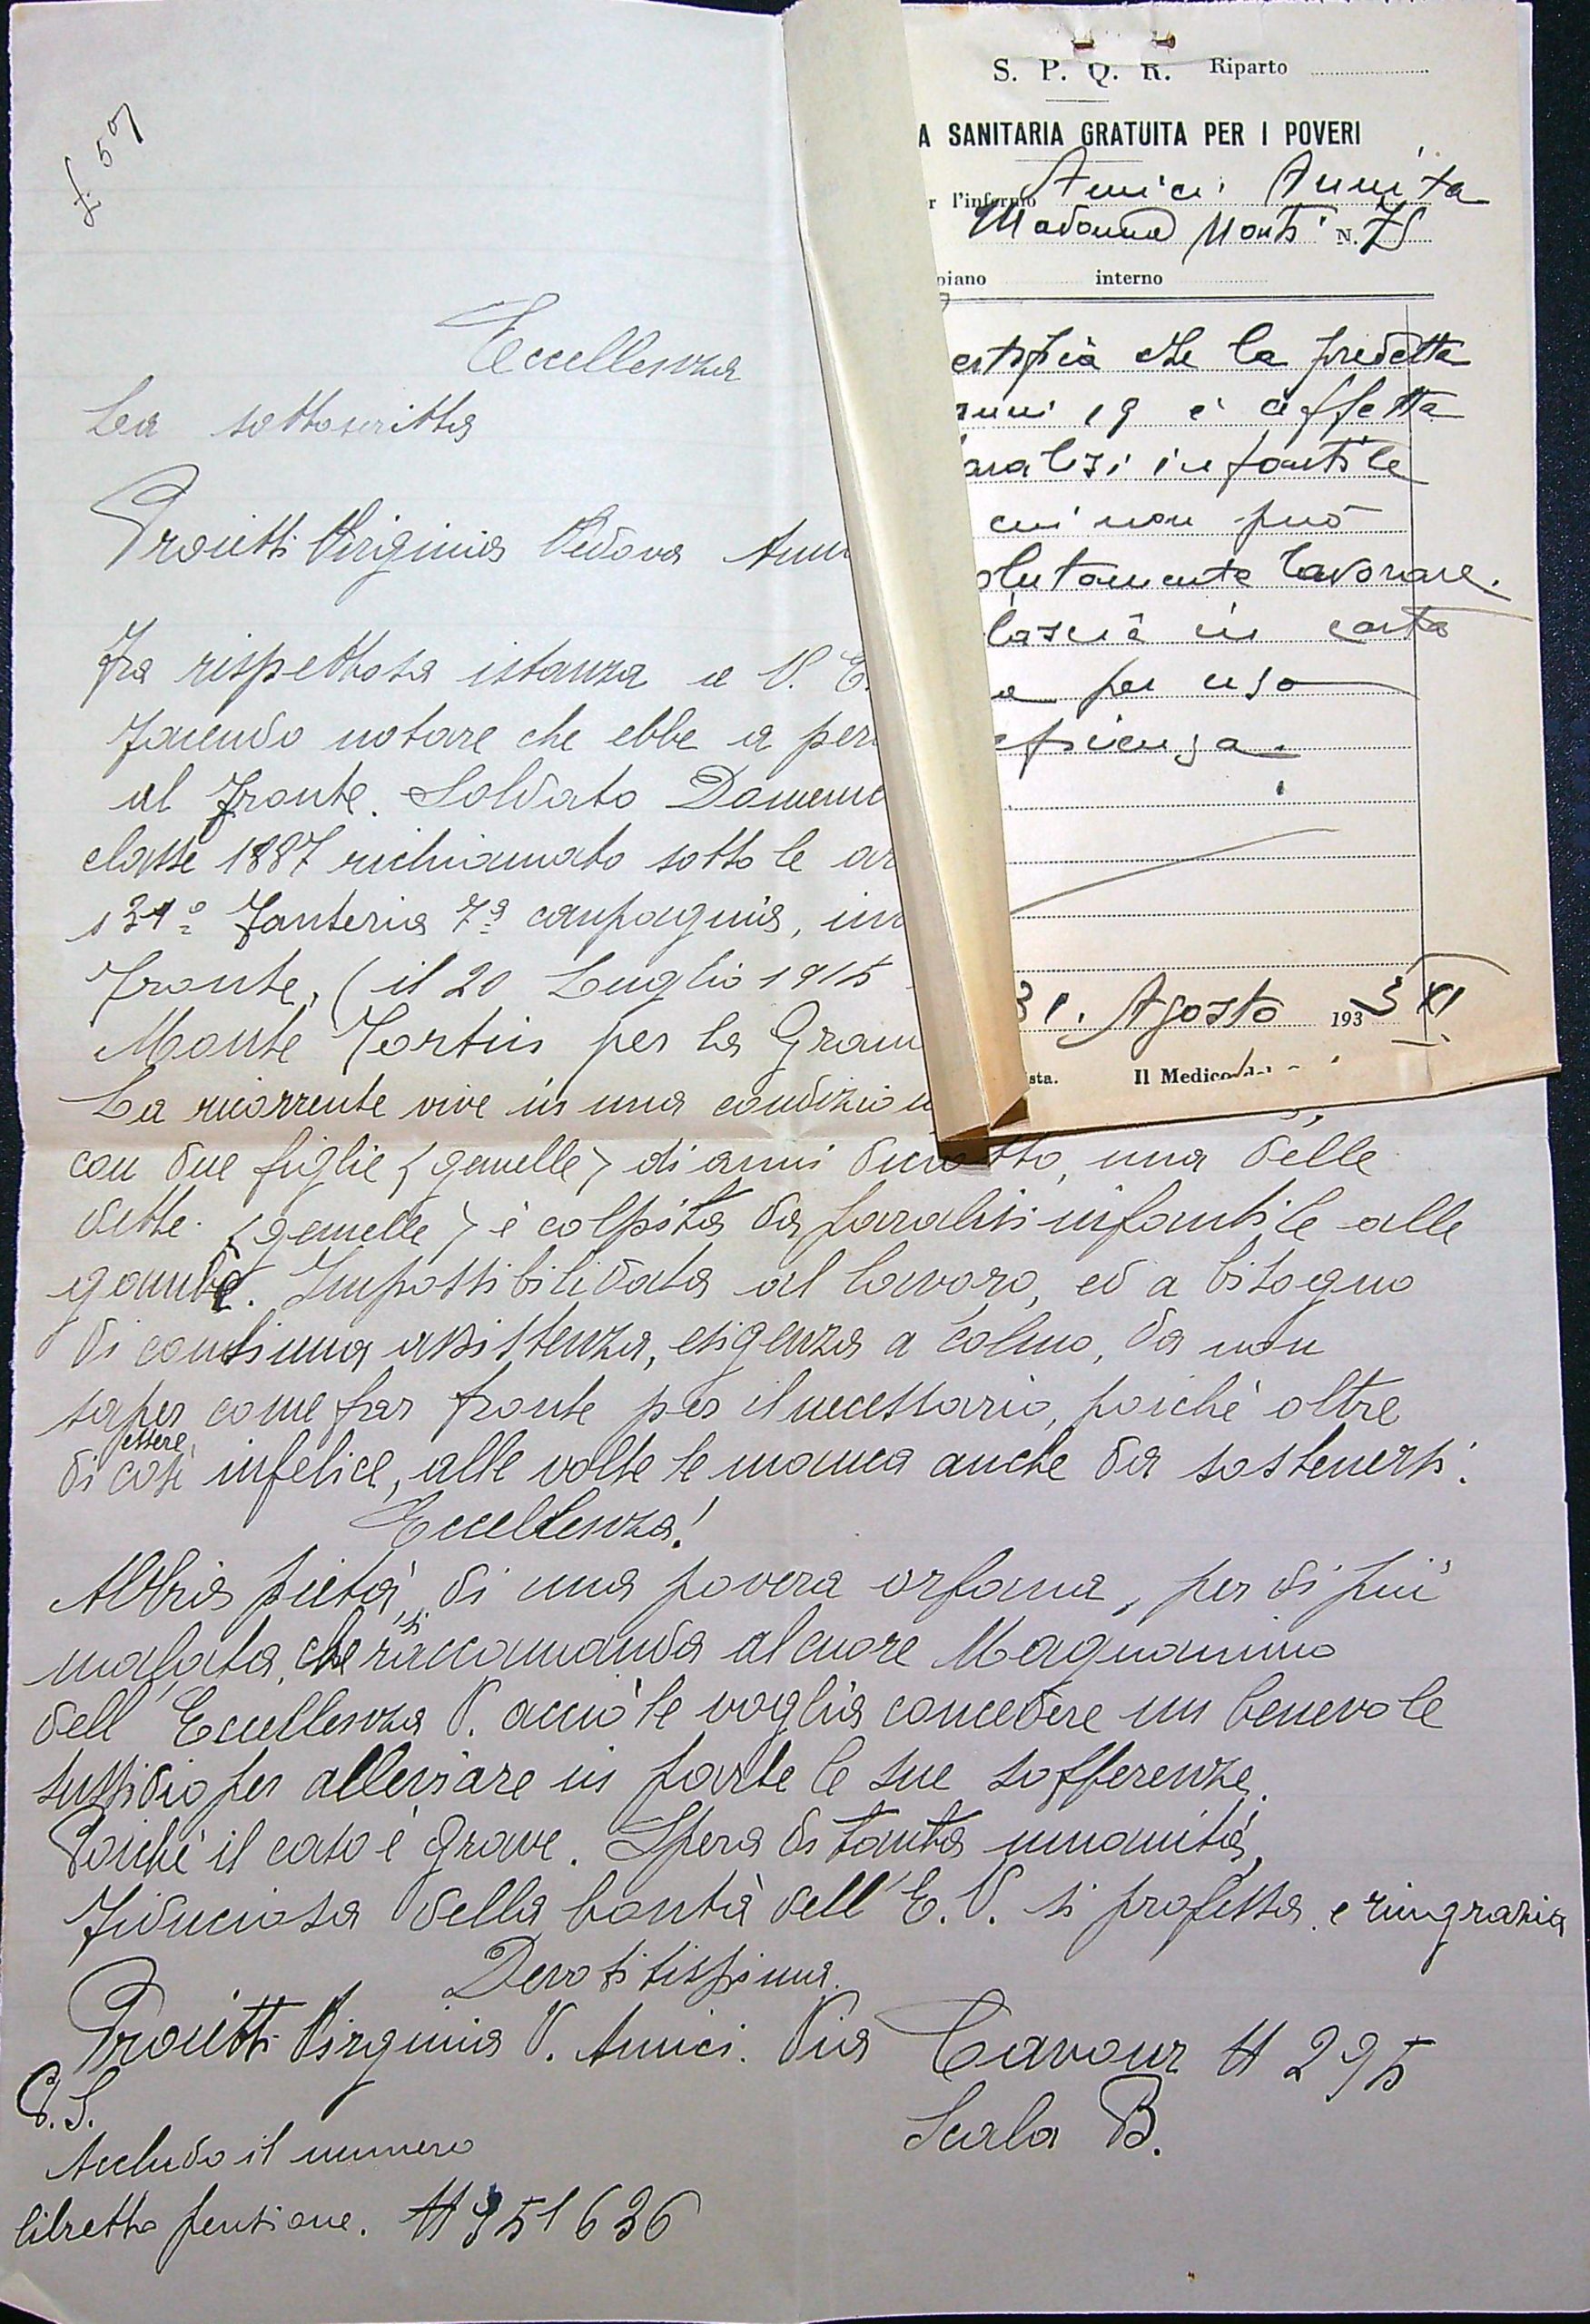 £ 50
Eccellenza
La sottoscritta
Proietti Virginia Vedova
Fa rispettosa istanza a V. E.
facendo notare che ebbe a per
al fronte. Soldato Domenic
classe 1887 richiamato sotto le ar
131º Fanteria 7ª compagnia, in
fronte, (il 20 Luglio 1915
Monte Fortin per la Gran
La ricorrente vive in una condizion
con due figlie (gemelle) di anni diciotto, una delle
dette. (gemelle) è colpita da paralisi infantile alle
gambe. Impossibilidata al lavoro, ed a bisogno
di continua assistenza, esigenza a colmo, da non
saper come far fronte per il necessario, poichè oltre
di essere così infelice, alle volte le manca anche da sostenersi.
Eccellenza!
Abbia pietà, di una povera orfana, per di più
malata, che si raccomanda al cuore Magnanimo
dell'Eccellenza V. acciò le voglia concedere un benevole
sussidio per alleviare in parte le sue sofferenze.
Poichè il caso è grave. Spera di tanta umanità,
Fiduciosa della bontà dell'E. V. si professa e ringrazia
Devotissima.
Proietti Virginia V. Amici. Via Cavour N 295
Scala B.
P.S.
Accludo il numero
libretto pensione. N 951636
S. P. Q. R. Riparto
A SANITARIA GRATUITA PER I POVERI
r l'infermo Amici Annita
Madonna Monti N. 75
piano interno
ertifica che la predetta
anni 19 è affetta
aralisi infantile
cui non può
olutamente lavorare.
lascia in carta
a per uso
eficenza.
31. Agosto 1933 XI
sta. Il Medico